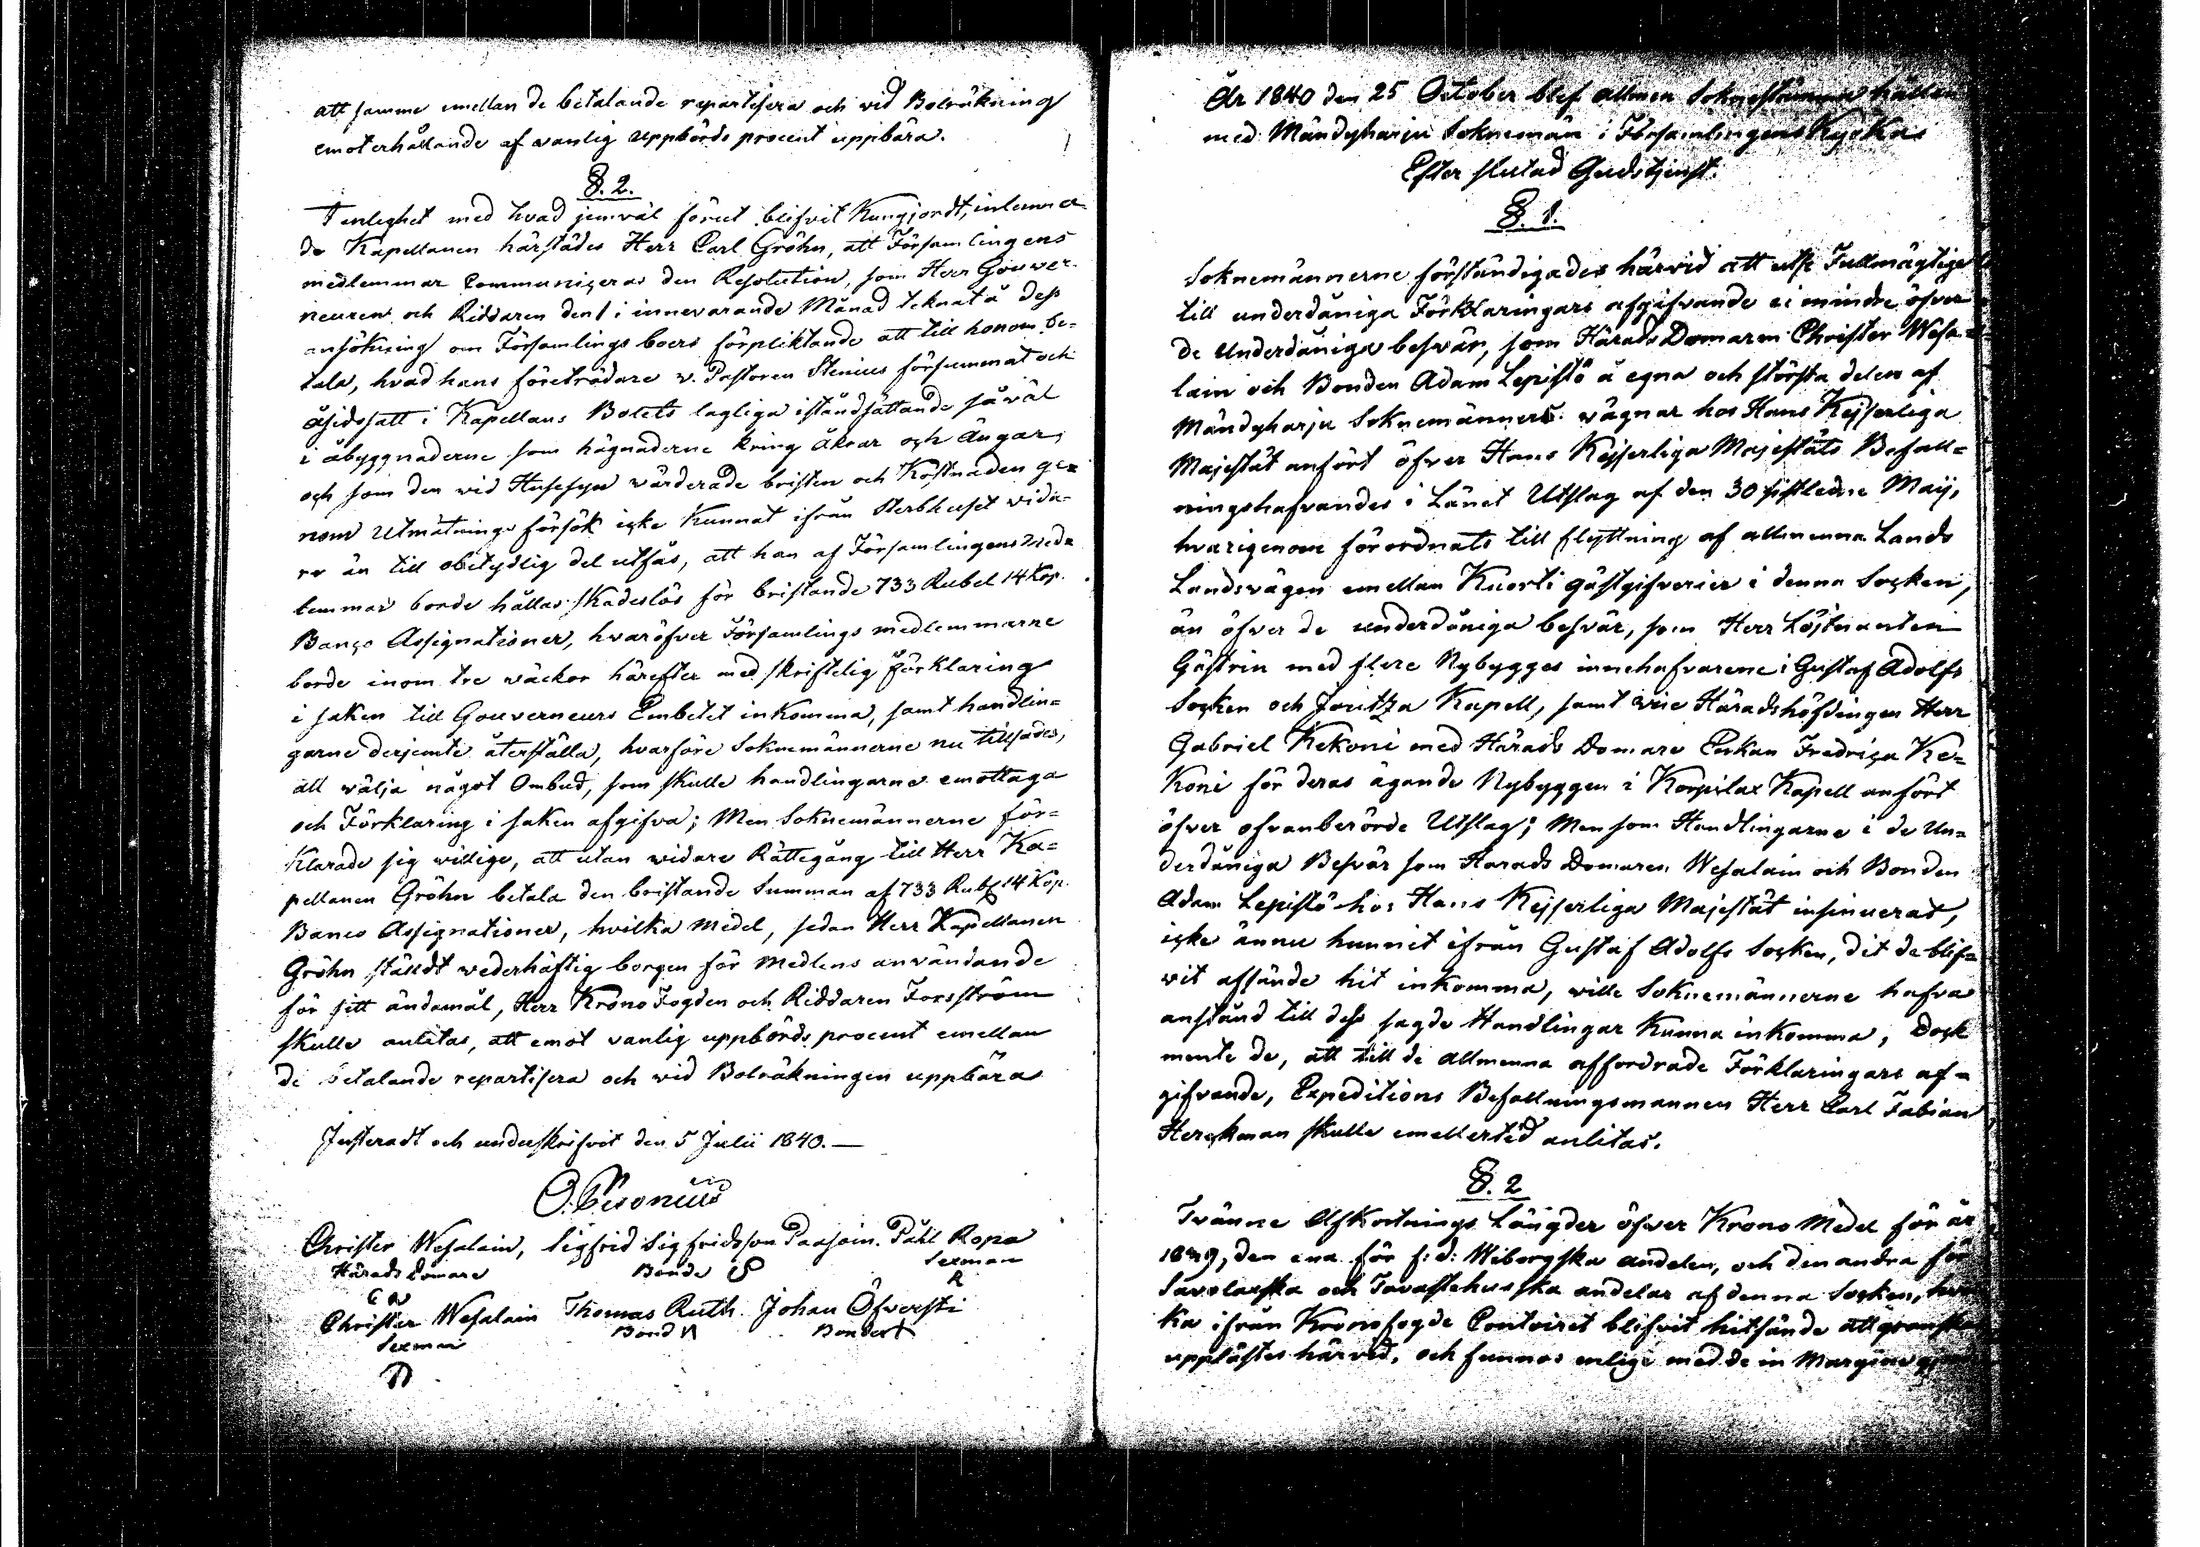 att samme emellan de betalande repartisera och vid Bolräkning
emot erhållande af vanlig uppbörds procent uppbära.
§. 2.
I enlighet med hvad jemväl förut blifvit Kungjordt, inlemna
de Kapellanen härstädes Herr Carl Gröhn, att Församlingens
medlemmar Communiceras den Resolution, som Herr Gouver-
neuren och Riddaren den 1 i innevarande Månad teknat å dess
ansökning om Församlings boers förpliktande att till honom be-
tala, hvad hans företrädare v. Pastoren Stenius försummat och
åsidosatt i Kapellans Bolets lagliga iståndsättande såväl
i åbyggnaderne som hägnaderne kring åkrar och ängar,
och som den vid Husesyn wärderade bristen och Kostnaden ge-
nom Utmätnings försök icke Kunnat ifrån Sterbhuset wida-
re än till obetydlig del utfås, att han af Församlingens Med-
lemmar borde hållas skadeslös för bristande 733 Rubel 14 Kop.
Banco Assignationer, hvaröfver Församlings medlemmarne
borde inom tre wäckor härefter med skriftelig förklaring
i saken till Gouverneurs Embetet inkomma, samt handlin-
garne derjemte återställa, hvarföre Soknemännerne nu tillsades,
att wälja något Ombud, som skulle handlingarne emottaga
och Förklaring i saken afgifva; Men Soknemännerne för-
klarade sig willige, att utan widare Rättegång till Herr Ka-
pellanen Gröhn betala den bristande Summan af 733 Rub 14 Kop.
Banco Assignationer, hvilka medel, sedan Herr Kapellanen
Gröhn stäldt wederhäftig borgen för Medlens användande
för sitt ändamål, Herr Krono Fogden och Riddaren Forsström
skulle anlitas, att emot vanlig uppbörds procent emellan
de betalande repartisera och wid Bolräkningen uppbära
Justeradt och underskrifvit den 5 Julii 1840. —
Christer Wesalain, Sigfrid Sigfridsson Paasoin. Påhl Ropa
Härads Domare Bonde Sexman
Christer Wesalain Thomas Ruth. Johan Öfversti
Sexman Bond Bonden
År 1840 den 25 October blef allmen Soknestämma hållen
med Mändyharju Soknemän i Församlingens Kyrka
Efter slutad Gudstjenst.
§. 1.
Soknemännerne förständigades härvid att utse Fullmägtige
till underdåniga Förklaringars afgifvande ei mindre öfver
de Underdåniga besvär, som Härads Domaren Christer Wesa-
lain och Bonden Adam Lepistö å egna och största delen af
Mändyharju Soknemänners wägnar hos Hans Kejserliga
Majestät anfört öfver Hans Kejserliga Majestäts Befall-
ningshafvandes i Länet Utslag af den 30 sistledne Maij,
hvarigenom förordnats till flyttning af allmenna Lands
Landsvägen emellan Kuorti gästgifverier i denna Socken,
än öfver de underdåniga besvär, som Herr Löjtnanten
Gästrin med flere Nybygges innehafvarene i Gustaf Adolfs
Socken och Joutza Kapell, samt vice Häradshöfdingen Herr
Gabriel Kekoni med Härads Domare Enkan Fredrica Ke-
koni för deras ägande Nybyggen i Korpilax Kapell anfört
öfver ofvanberörde Utslag; Men som Handlingarne i de Un-
derdåniga Besvär som Härads Domaren Wesalain och Bonden
Adam Lepistö hos Hans Kejserliga Majestät insinuerat,
icke ännu hunnit ifrån Gustaf Adolfs Socken, dit de blif-
vit afsände hit inkomma, wille Soknemännerne hafva
anstånd till dess sagde Handlingar Kunna inkomma, dock
mente de, att till de allmenna affordrade Förklaringars af-
gifvande, Expeditions Befallningsmannen Herr Carl Fabian
Herckman skulle emellertid anlitas.
§. 2
Tvänne Afkortnings Längder öfver Krono Medel för år
1839, den ena för f: d: Wiborgska andelen, och den andra för
Savolaxska och Tavastehusska andelar af denna Socken, hvil
ka ifrån Kronofogde Contoiret blifvit hitsände att granskas
upplästes härvid, och funnos enlige med de in Margine